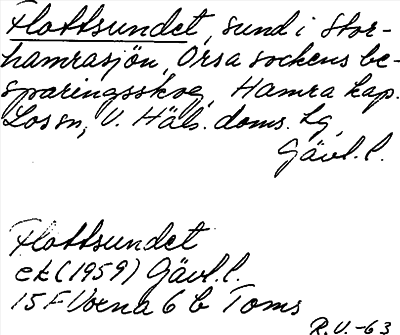 Flottsundet, sund i Stor-
hamrasjön, Orsa sockens be-
sparingsskog, Hamra kap.
Lossn, V. Häls. doms. Lg,
Gävl. l.
Flottsundet
ek (1959) Gävl. l.
15 F Voxna 6 b Toms
R.V.-63